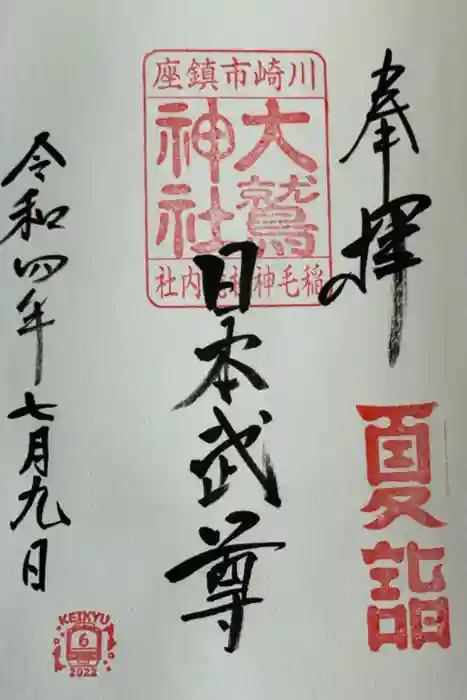 奉拝
夏詣
川崎市鎮座
大鷲
神社
稲毛神社境内社
日本武尊
令和四年七月九日
KEIKYU
6
2022